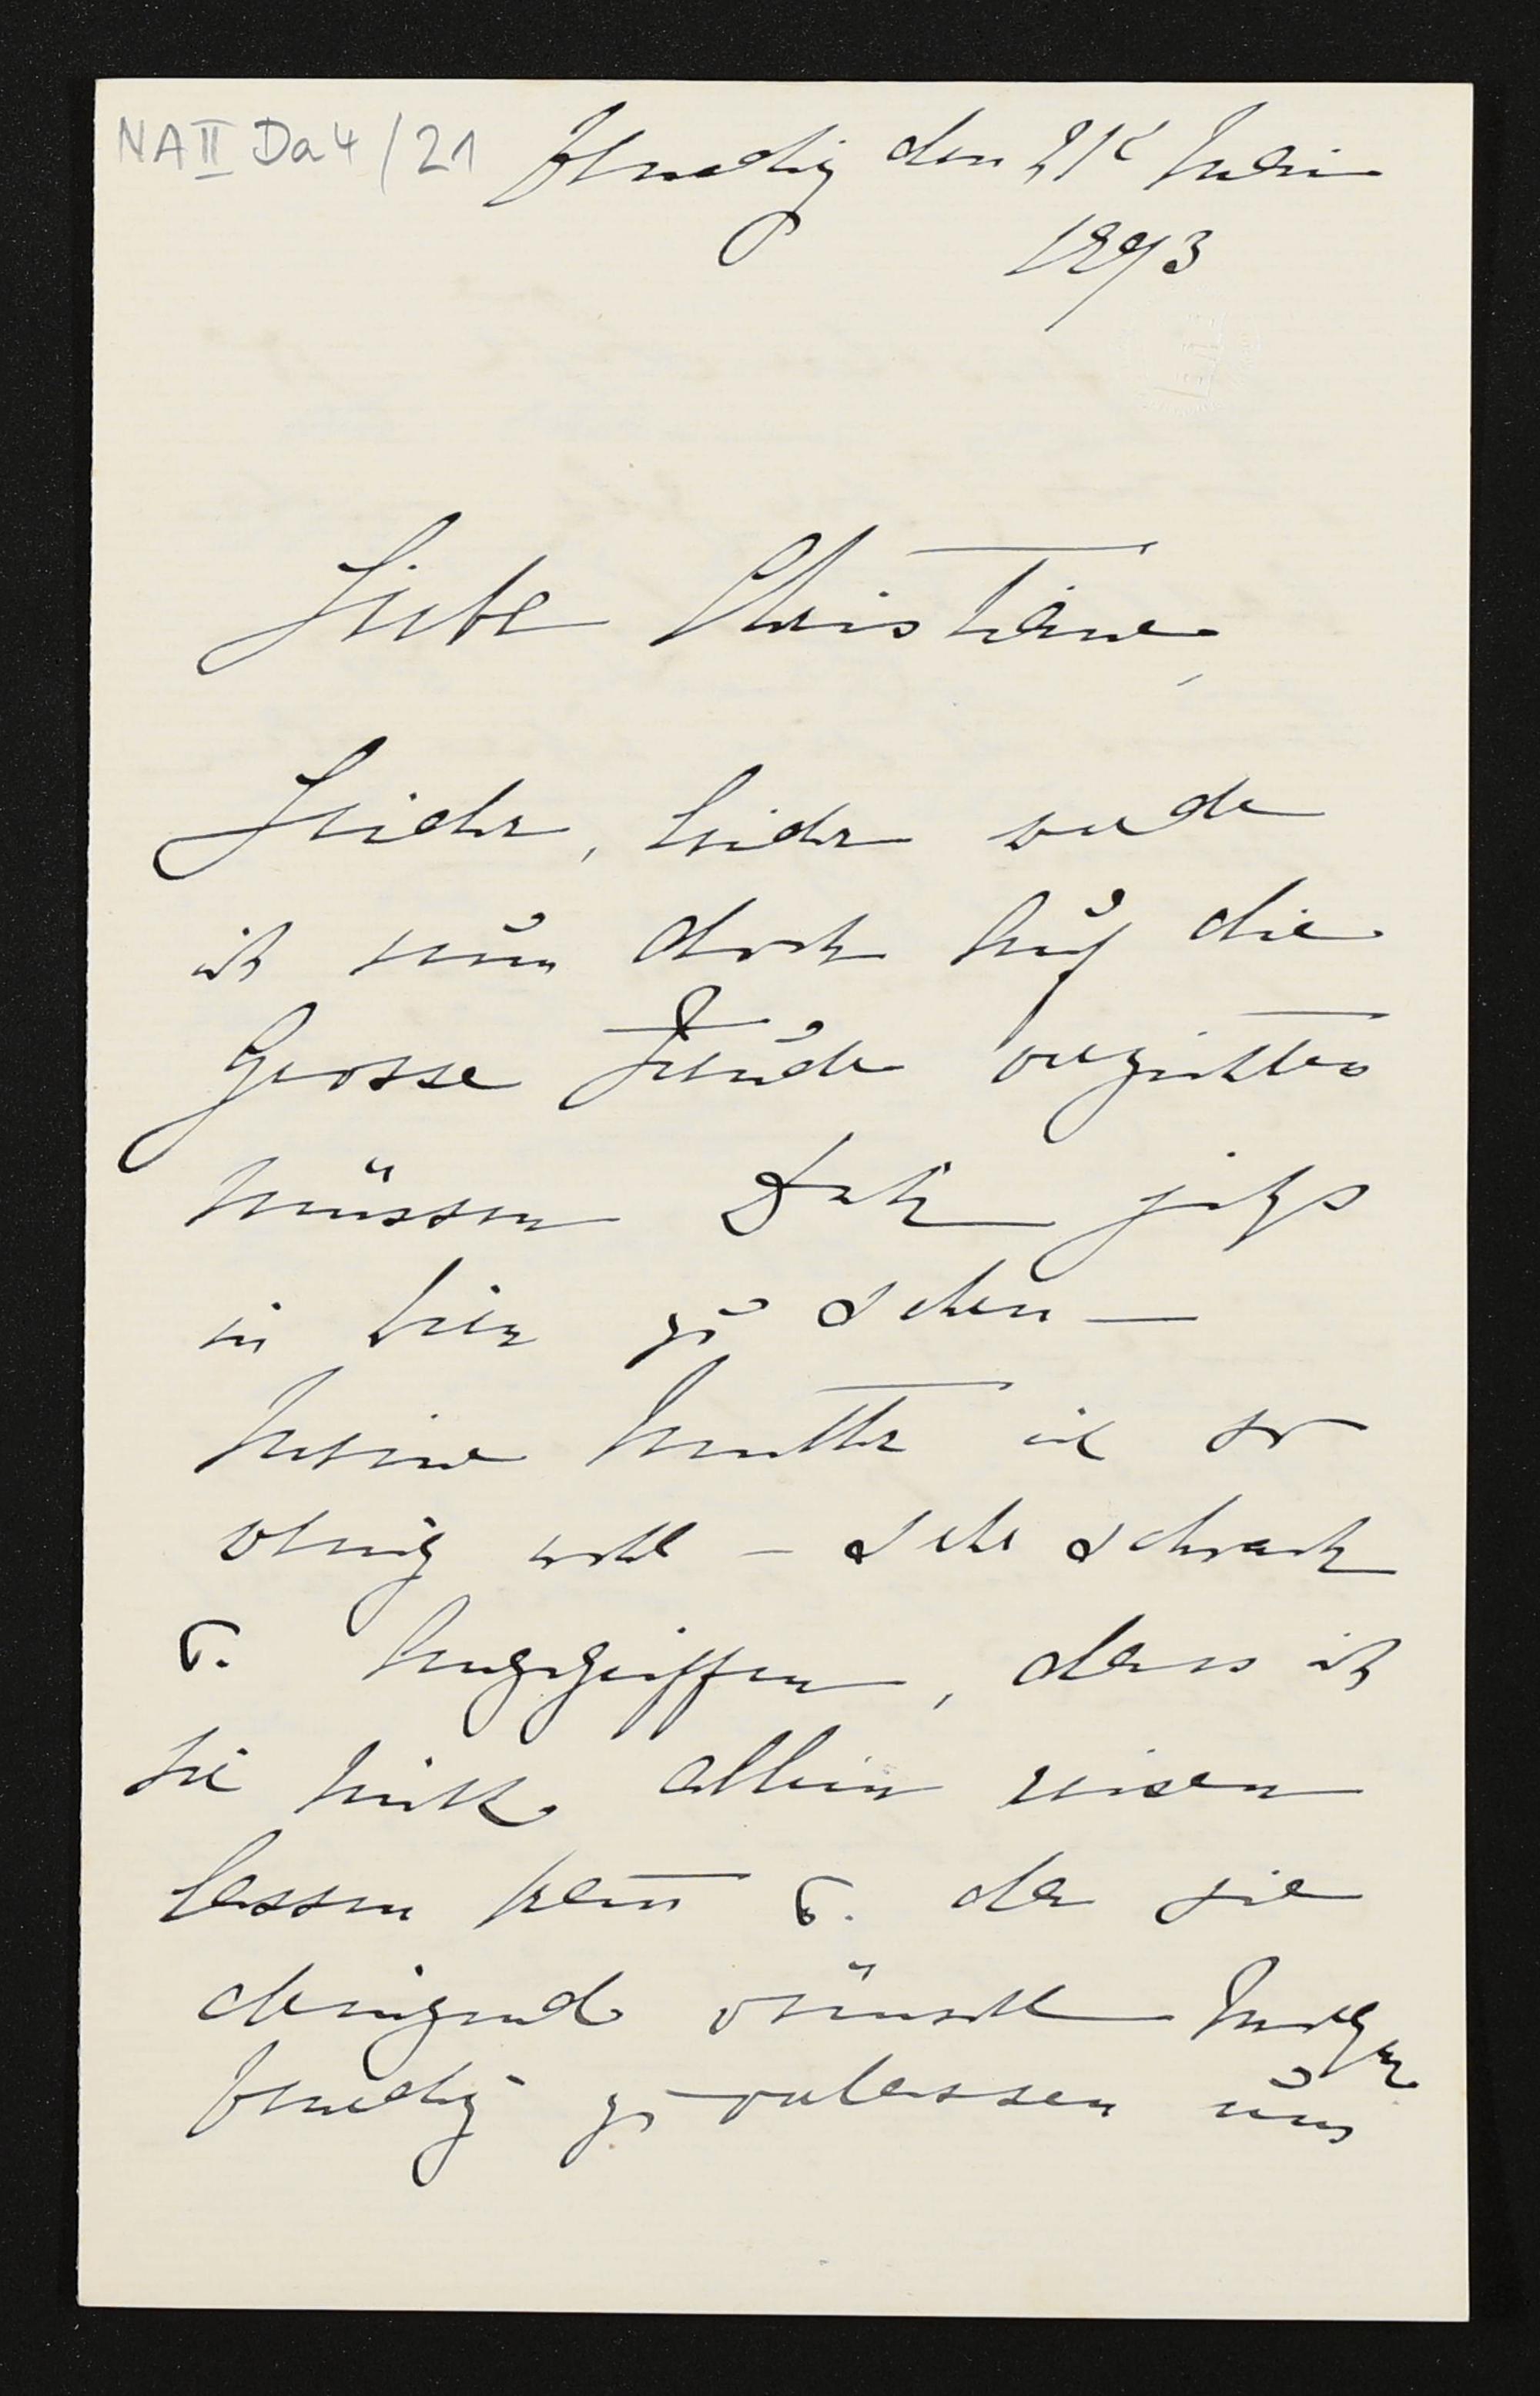 NA II Da 4/21 Venedig den 21t Mai
1893
Liebe Christiane,
Leider, leider werde
ich nun doch auf die
Grosse Freude verzichten
müssen Dich jetzt
in Wien zu sehen —
Meine Mutter ist so
wenig wohl – sehr schwach
u. angegriffen, dass ich
sie nicht allein reisen
lassen kann u. da sie
dringend wünscht morgen
Venedig zu verlassen um